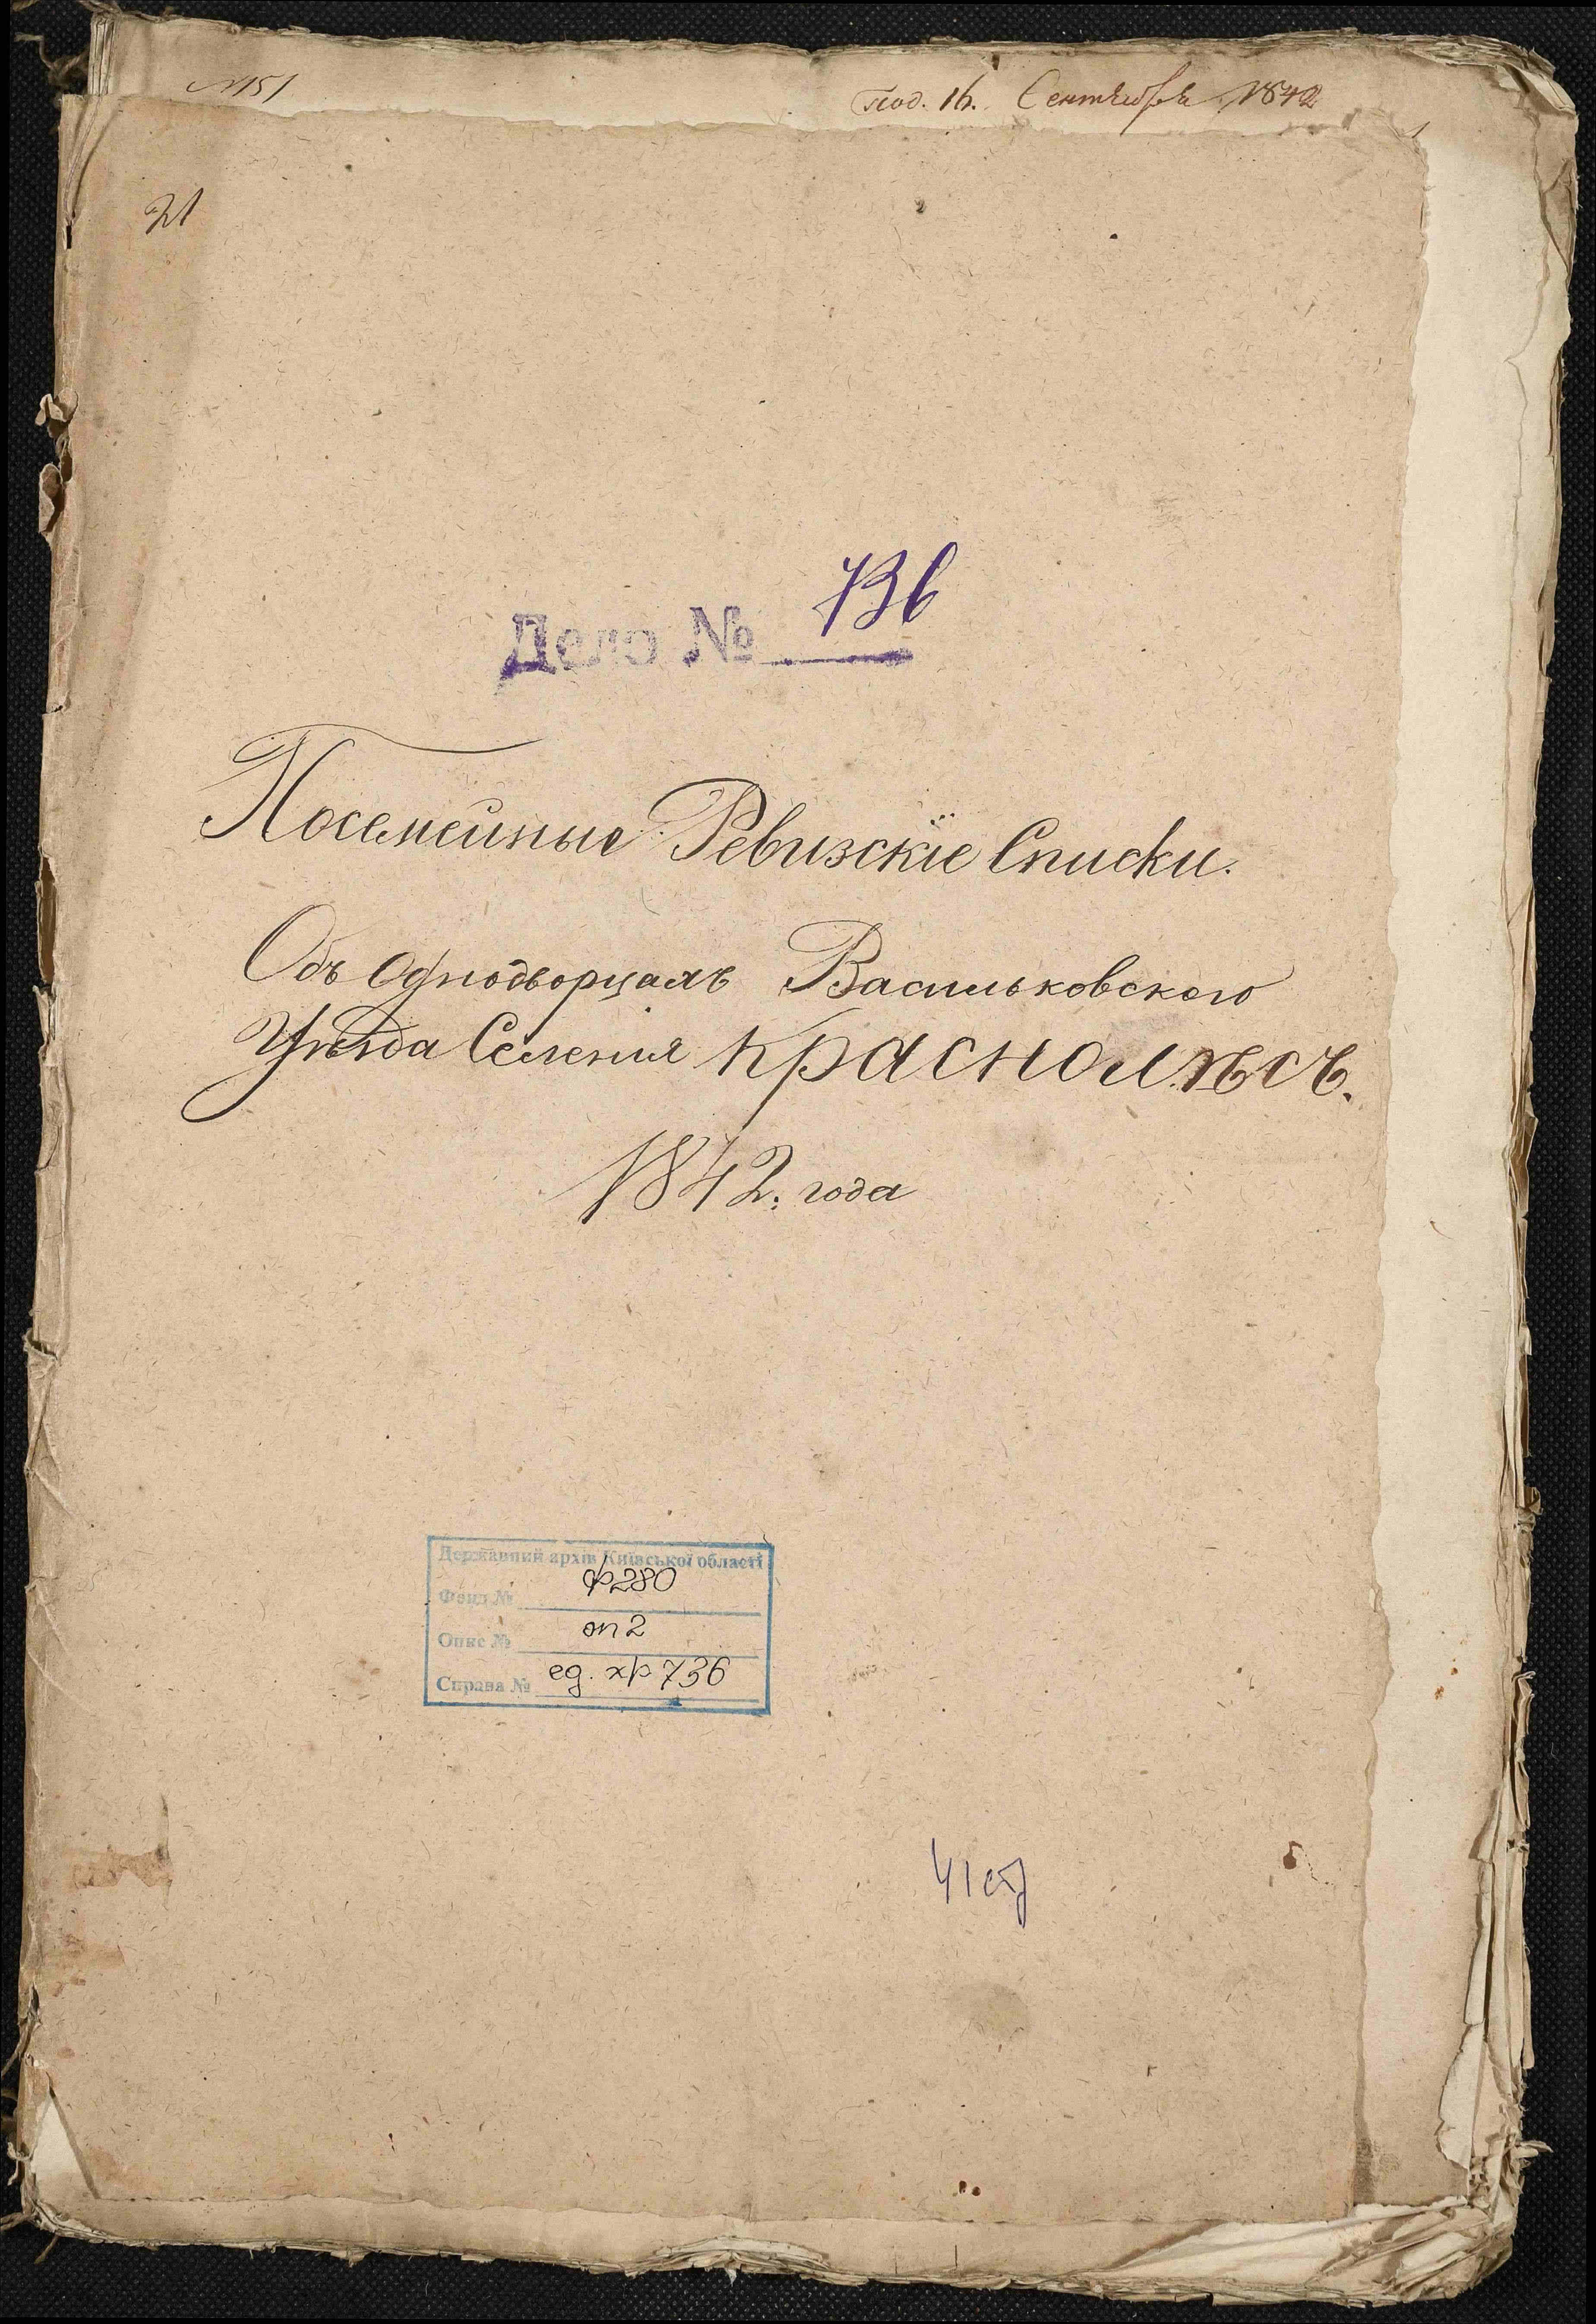 №151
Под. 16. Сентября 1842
21
Дело № 736
Посемейные Ревизскіе Списки.
Объ Однодворцахъ Васильковского
Уѣзда Селенія Краснолѣсъ.
1842. года
Державний архів Київської області
Фонд № ф280
Опис № оп2
Справа № ед. хр 736